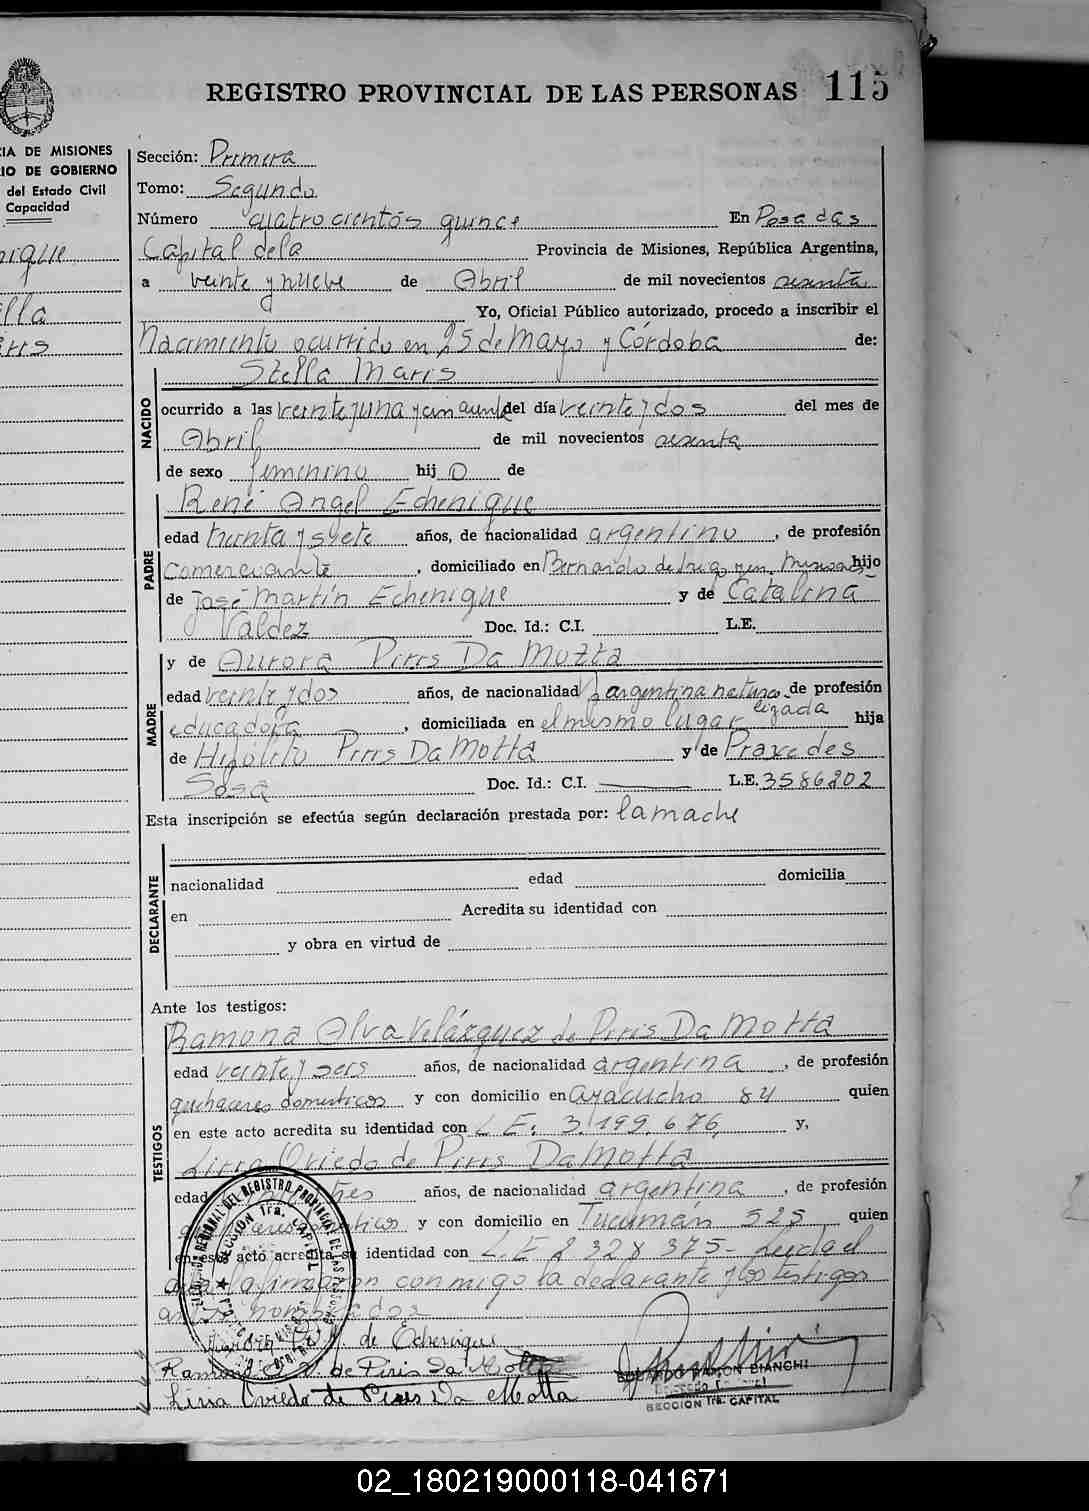 REGISTRO PROVINCIAL DE LAS PERSONAS 115
IA DE MISIONES
IO DE GOBIERNO
del Estado Civil
Capacidad
Sección: Primera
Tomo: Segundo
Número cuatrocientos quince En Posadas
Capital de la Provincia de Misiones, República Argentina,
a veinte y nueve de Abril de mil novecientos sesenta
Yo, Oficial Público autorizado, procedo a inscribir el
Nacimiento ocurrido en 25 de Mayo y Córdoba de:
NACIDO
Stella Maris
ocurrido a las veinte y una y cincuenta del día veinte y dos del mes de
Abril de mil novecientos sesenta
de sexo femenino hij o de
PADRE
René Angel Echenique
edad treinta y siete años, de nacionalidad argentino, de profesión
comerciante, domiciliado en Bernardo de Irigoyen, Misiones hijo
de José Martín Echenique y de Catalina
Valdez Doc. Id.: C.I. L.E.
MADRE
y de Aurora Piris Da Motta
edad veinte y dos años, de nacionalidad argentina natura- de profesión
lizada
educadora, domiciliada en el mismo lugar hija
de Hipólito Piris Da Motta y de Praxedes
Sosa Doc. Id.: C.I. L.E. 3586202
Esta inscripción se efectúa según declaración prestada por: la madre
DECLARANTE
nacionalidad edad domicilia
en Acredita su identidad con
y obra en virtud de
Ante los testigos:
TESTIGOS
Ramona Alva Velázquez de Piris Da Motta
edad veinte y seis años, de nacionalidad argentina, de profesión
quehaceres domésticos y con domicilio en Ayacucho 84 quien
en este acto acredita su identidad con L E. 3.199.676, y,
Liria Oviedo de Piris Da Motta
edad tres años, de nacionalidad argentina, de profesión
y con domicilio en Tucumán 525 quien
en este acto acredita su identidad con L.E 2 328 375- Leída el
acta la firman conmigo la declarante y los testigos
nombrados
de Echenique
Ramona A. V. de Piris Da Motta
Liria Oviedo de Piris Da Motta
RAMON BIANCHI
SECCION 1ra. CAPITAL
02_180219000118-041671